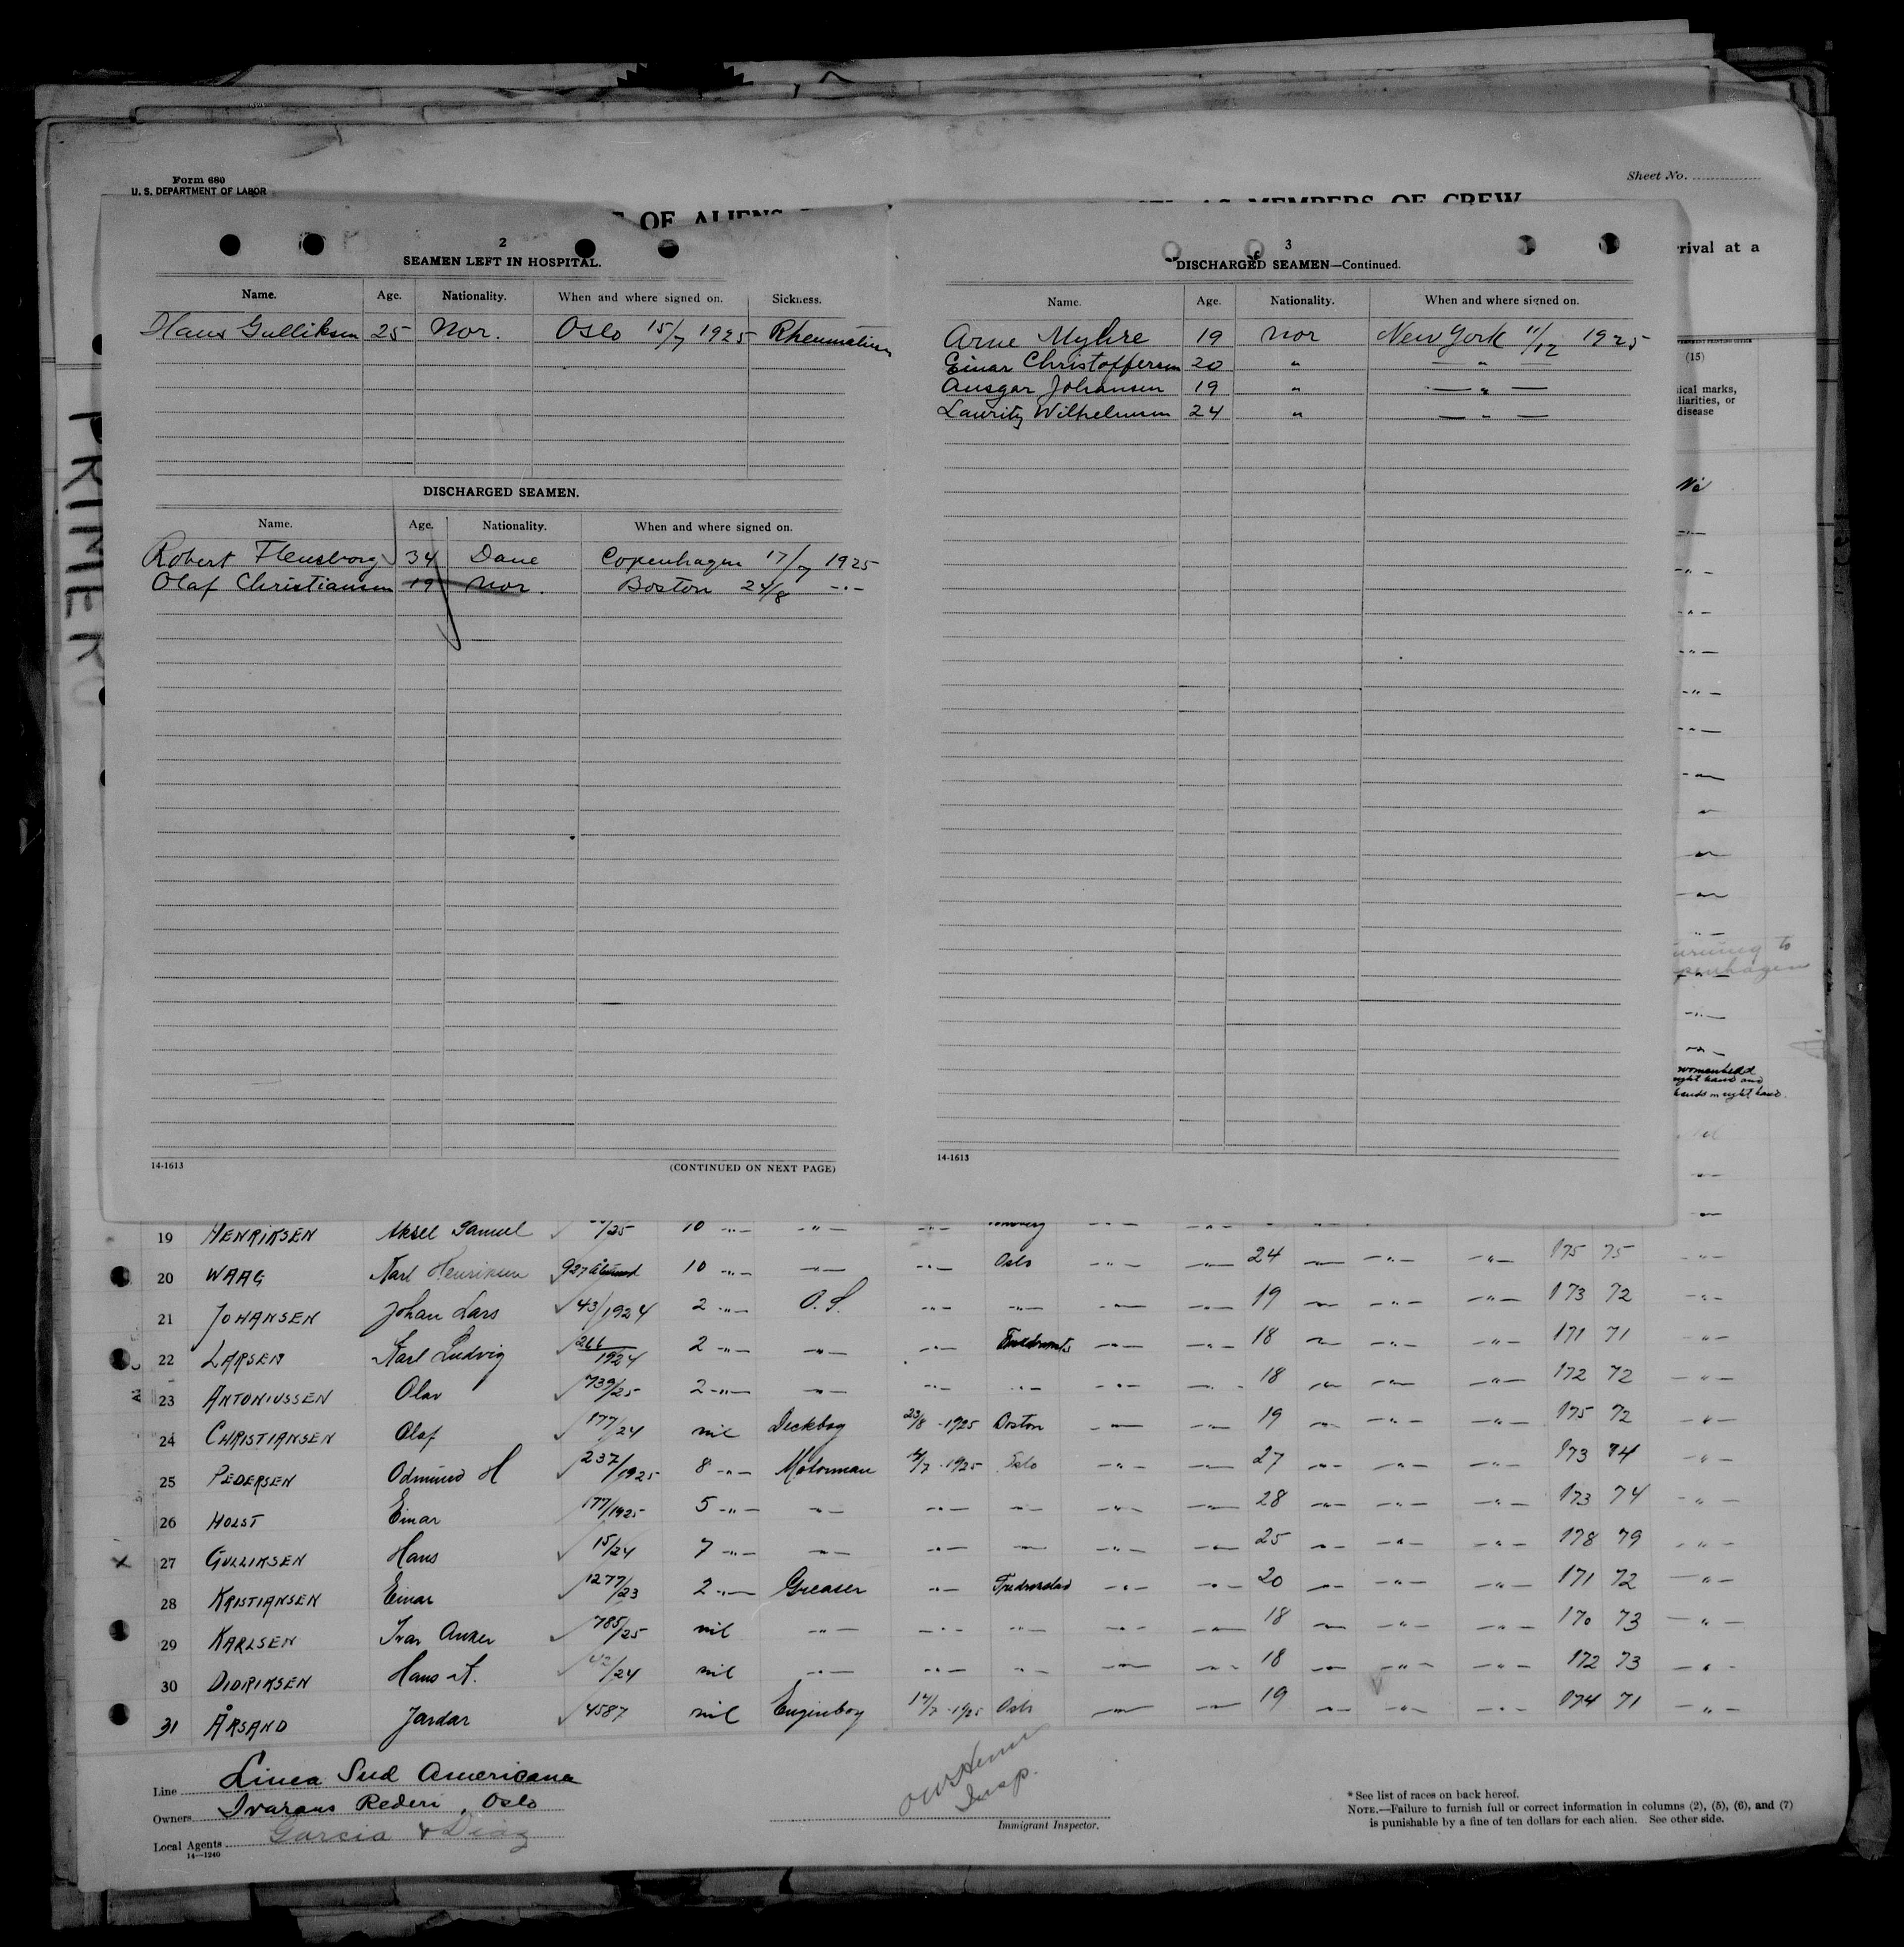 Form 680
U. S. DEPARTMENT OF LABOR
Sheet No.
OF ALIENS
AS MEMBERS OF CREW
rival at a
PRIMERO
2
SEAMEN LEFT IN HOSPITAL.
Name. Age. Nationality. When and where signed on. Sickness.
Hans Gulliksen 25 Nor. Oslo 15/7 1925 Rheumatism
DISCHARGED SEAMEN.
Name. Age. Nationality. When and where signed on.
Robert Flensborg 34 Dane Copenhagen 17/7 1925
Olaf Christiansen 19 Nor. Boston 24/8 -"-
14-1613
(CONTINUED ON NEXT PAGE)
3
DISCHARGED SEAMEN—Continued.
Name. Age. Nationality. When and where signed on.
Arne Myhre 19 Nor New York 11/12 1925
Einar Christoffersen 20 " — " —
Ansgar Johansen 19 " — " —
Lauritz Wilhelmsen 24 " — " —
14-1613
(15)
ical marks,
liarities, or
disease
right hand and
on right hand
19 HENRIKSEN Aksel Samuel /25 10 -"- -"- -"-
20 WAAG Karl Henriksen 927 10 -"- -"- -"- Oslo -"- -"- 24 -"- -"- -"- 175 75 -"-
21 JOHANSEN Johan Lars 43/1924 2 -"- O.S. -"- -"- -"- -"- 19 -"- -"- -"- 173 72 -"-
22 LARSEN Karl Ludvig 266/1924 2 -"- -"- -"- -"- -"- 18 -"- -"- -"- 171 71 -"-
23 ANTONIUSSEN Olav 739/25 2 -"- -"- -"- -"- -"- -"- 18 -"- -"- -"- 172 72 -"-
24 CHRISTIANSEN Olaf 177/24 nil Deckboy 23/8 -1925 Boston -"- -"- 19 -"- -"- -"- 175 72 -"-
25 PEDERSEN Odmund H 237/1925 8 -"- Motorman /7 -1925 Oslo -"- -"- 27 -"- -"- -"- 173 74 -"-
26 HOLST Einar 177/1925 5 -"- -"- -"- -"- -"- -"- 28 -"- -"- -"- 173 74 -"-
27 GULLIKSEN Hans 15/24 7 -"- -"- -"- -"- -"- -"- 25 -"- -"- -"- 178 79 -"-
28 KRISTIANSEN Einar 1277/23 2 -"- Greaser -"- Fredrikstad -"- -"- 20 -"- -"- -"- 171 72 -"-
29 KARLSEN Ivar Anker 785/25 nil -"- -"- -"- -"- -"- 18 -"- -"- -"- 170 73 -"-
30 DIDRIKSEN Hans A. 42/24 nil -"- -"- -"- -"- -"- 18 -"- -"- -"- 172 73 -"-
31 ÅRSAND Jardar 4587 nil Engineboy 14/7 -1925 Oslo -"- -"- 19 -"- -"- -"- 174 71 -"-
Line Linea Sud Americana
Owners Ivarans Rederi, Oslo
Local Agents Garcia & Diaz
14—1240
Insp.
Immigrant Inspector.
* See list of races on back hereof.
NOTE.—Failure to furnish full or correct information in columns (2), (5), (6), and (7)
is punishable by a fine of ten dollars for each alien. See other side.